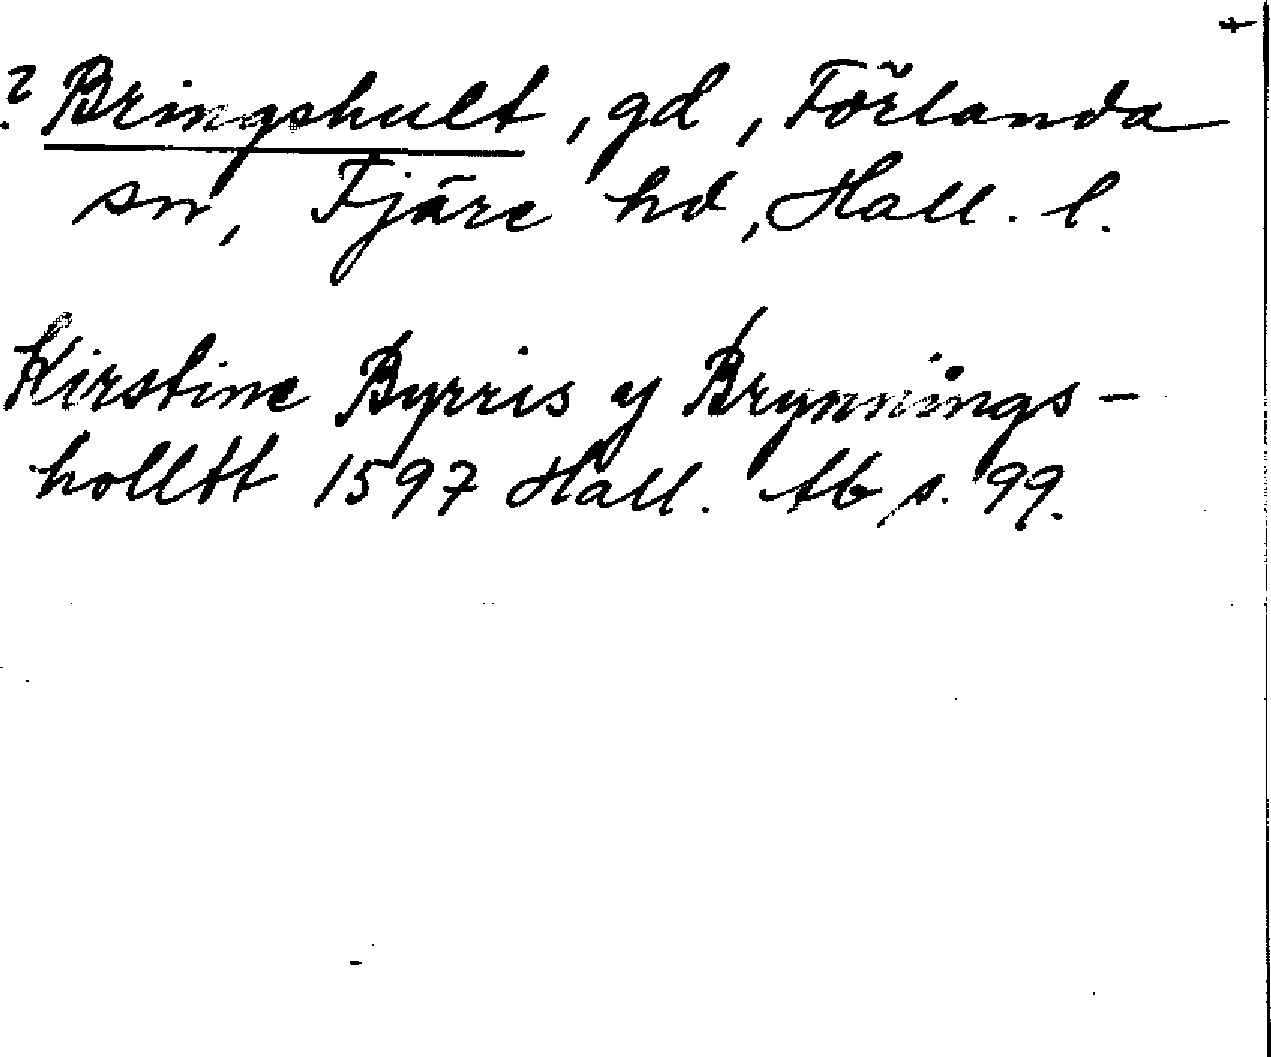 ? Bringshult, gd, Förlanda
sn, Fjäre hd, Hall. l.
Kirstine Byrris y Brynnings-
holltt 1597 Hall. tb s. 99.